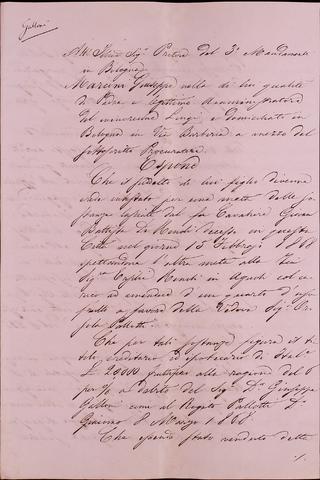 Galloni
All' Illmo Sigr Pretore del 3o Mandamento
in Bologna
Marcini Giuseppe nella di lui qualità
di Padre e legittimo Amministratore
del minorenne Luigi, e domiciliato in
Bologna in Via Barberia a mezzo del
sottoscritto Procuratore
Espone
Che il predetto di lui figlio divenne
erede intestato per una metà delle so
stanze lasciate dal fu Cavaliere Giovan
Battista de decesso in questa
Città nel giorno 15 Febbrajo 1868
spettandone l'altra metà alla Zia
Sigra in Aguchi col ca
rico ad amendue d'un quarto d'usu
frutto a favore della Vedova Sigra
Pallotti
Che per tali sostanze figura il ti
tolo creditorio ed ipotecario di Ital.e
£ 20,000 fruttifere alla ragione del 6
per % a debito del Sigr Dr Giuseppe
Galloni come al Rogito Pallotti Dr
Giacomo 8 Marzo 1868
Che essendo stato venduto dette
./.